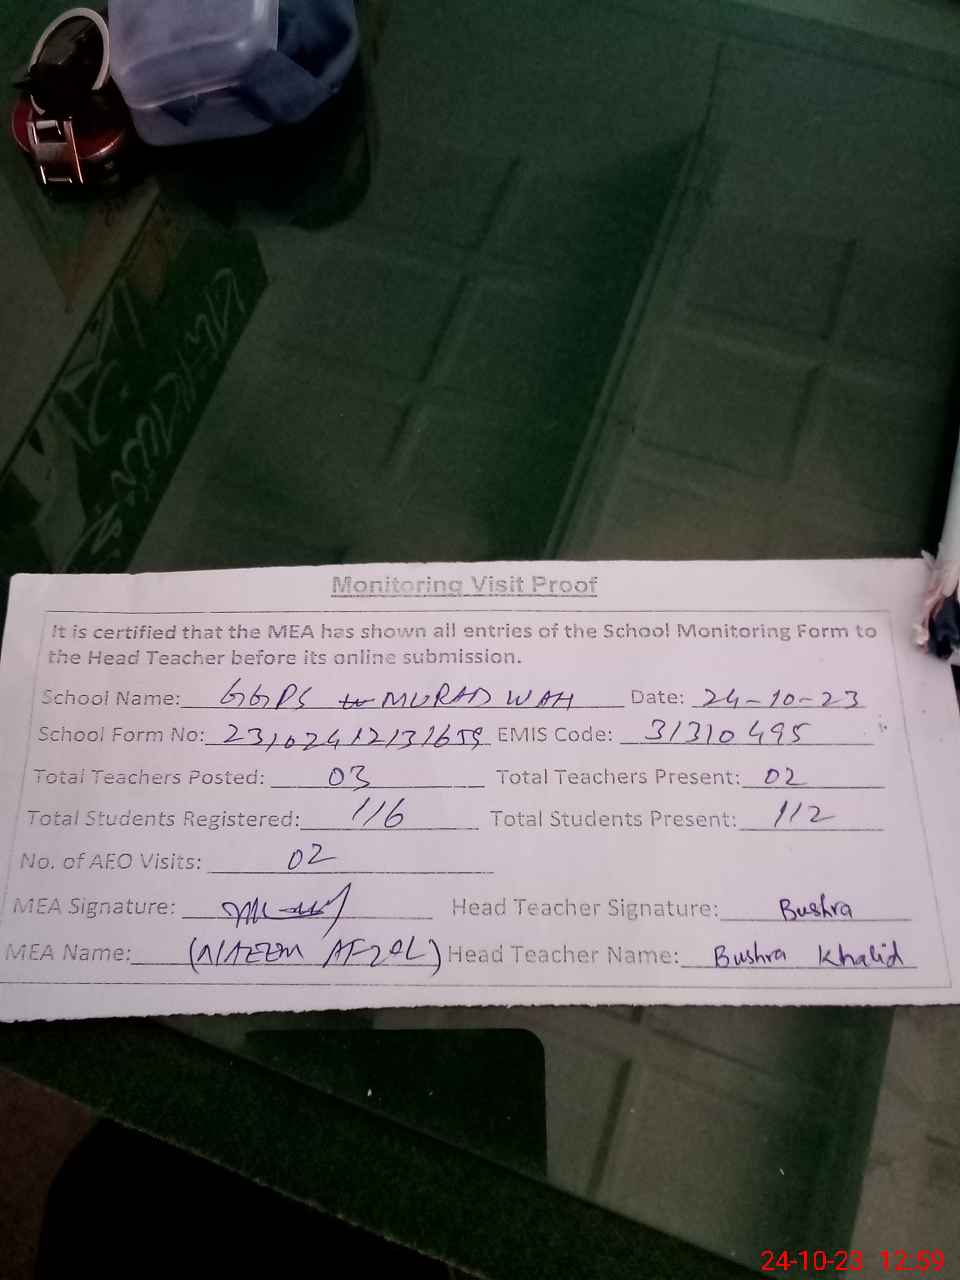 Monitoring Visit Proof
It is certified that the MEA has shown all entries of the School Monitoring Form to
the Head Teacher before its online submission.
School Name: GGPS MURAD WAH Date: 24-10-23
School Form No: 23102412131659 EMIS Code: 31310495
Total Teachers Posted: 03 Total Teachers Present: 02
Total Students Registered: 116 Total Students Present: 112
No. of AEO Visits: 02
MEA Signature: Head Teacher Signature: Bushra
MEA Name: (NAEEM AFZAL) Head Teacher Name: Bushra Khalid
24-10-23 12:59